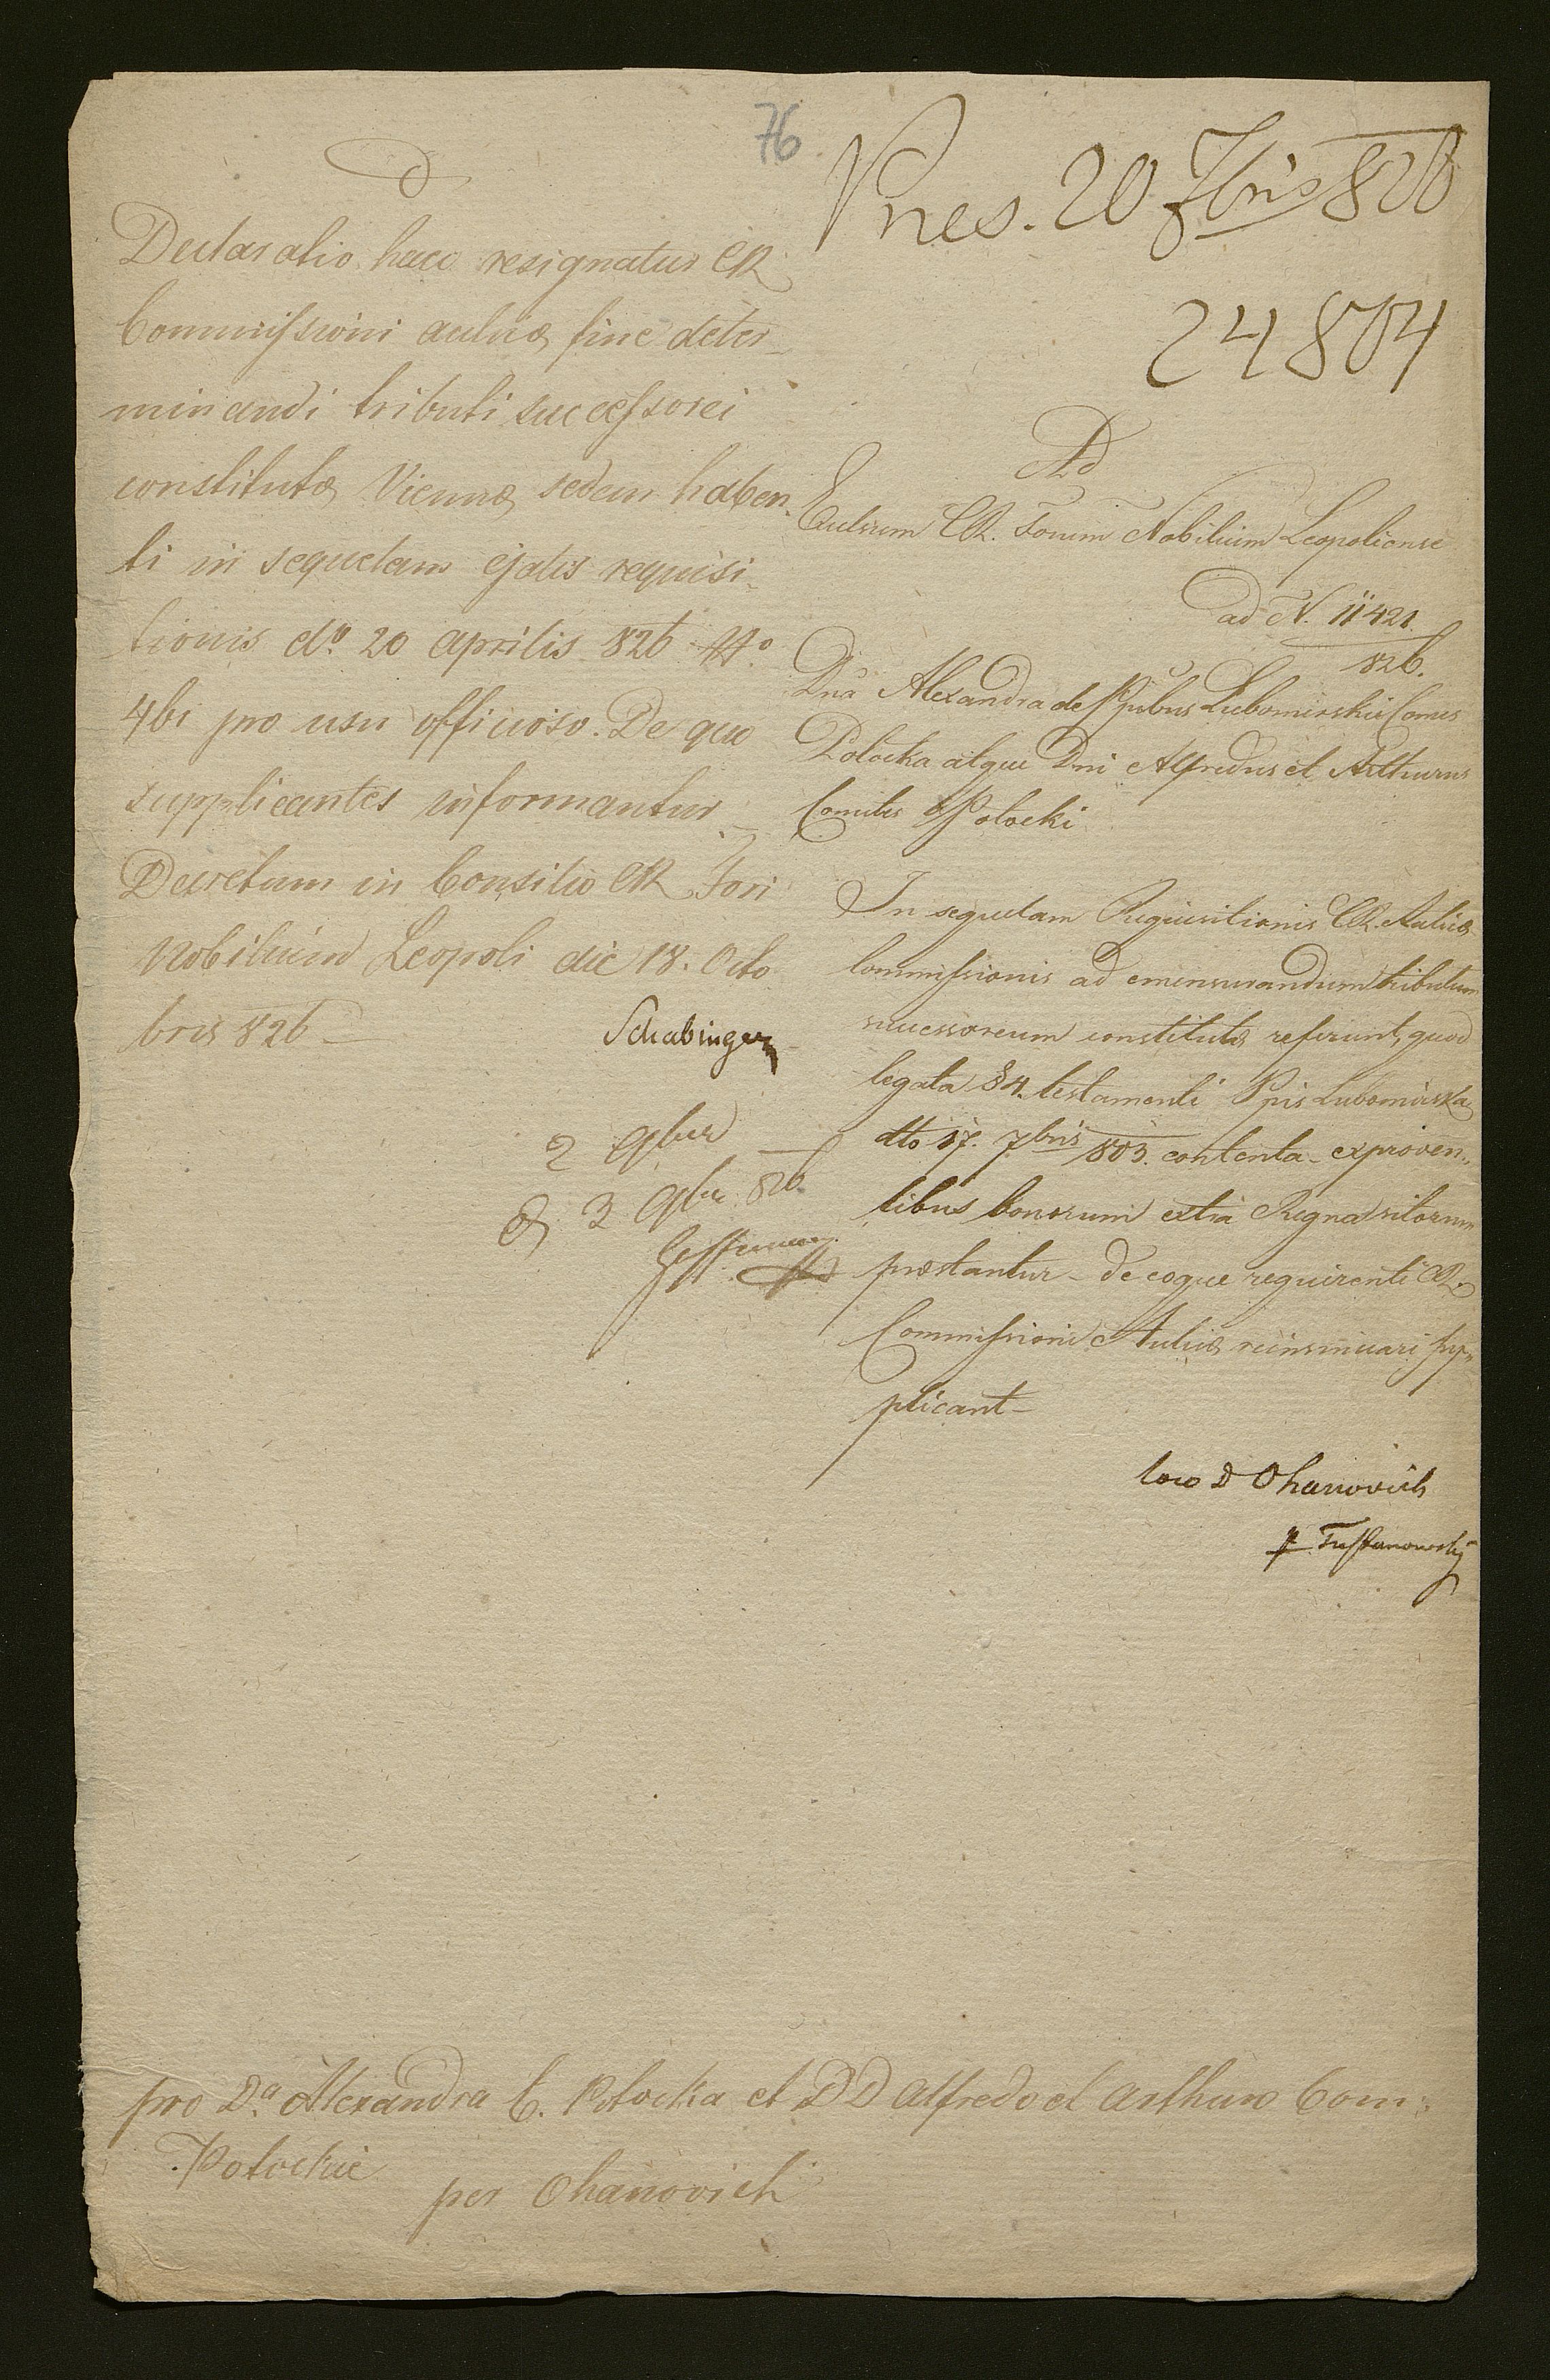 76
Pres. 20 7bris 826
24804
D
Declaratio haec resignatur CR
Commissioni aulicæ fine deter-
minandi tributi successorei
constitutæ Viennæ sedem haben-
ti in sequelam ejatis requisi-
tionis dº 20 aprilis 826 Nº
461 pro usu officioso. De quo
supplicantes informantur.
Decretum in Consilio CR Fori
Nobilium Leopoli die 18. Octo
bris 826
Schabinger
2 9ber
& 3 9ber 826.
Ad
Exclsum CR. Forum Nobilium Leopoliense
ad N. 11421.
826.
Dna Alexandra de Ppibus Lubomirskie Comes
Potocka atque Dni Alfredus et Arthurus
Comites Potocki
In sequelam Requisitionis CR. Aulicæ
Commissionis ad emensurandum tributum
successoreum constitutæ referunt, quod
legata § 4. testamenti Ppis Lubomirska
dto 17. 7bris 803. contenta - exproven-
tibus bonorum extra Regna sitorum
præstantur - de eoque requirenti CR.
Commissioni Aulicæ reinsinuari sup-
plicant -
loco D Ohanovich
Tustanowsky
pro Dª Alexandra C. Potocka et DD Alfredo et Arthuro Com:
Potockie
per Ohanovich